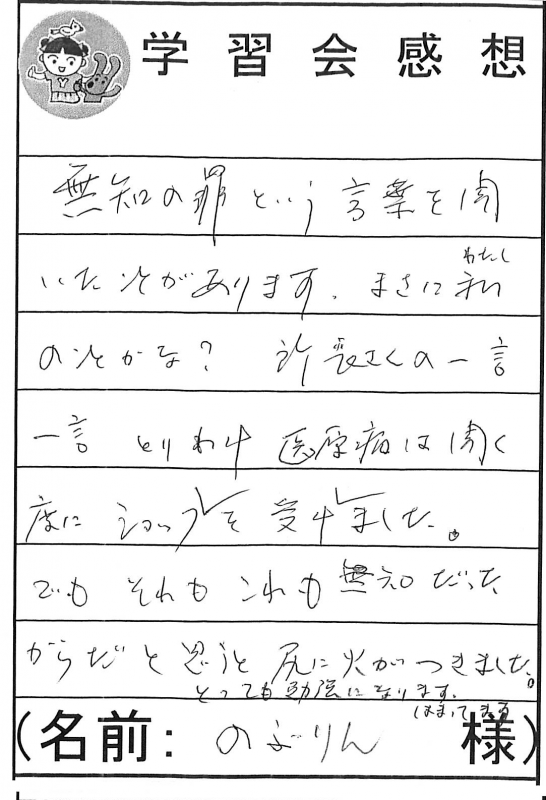 学習会感想
無知の罪という言葉を聞
いたことがあります。まさに私
わたし
のことかな? 所長さんの一言
一言 とりわけ 医原病は聞く
度に ショックを受けました。
でも それも これも 無知だった
からだと思うと 尻に火がつきました。
とっても勉強になります。
はまってまる
(名前: のぶりん 様)